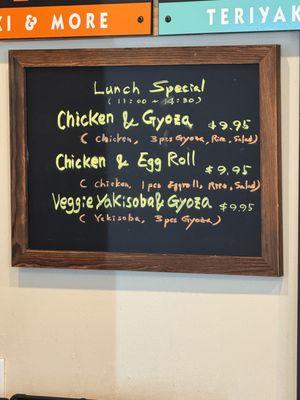 KI & MORE
TERIYAK
Lunch Special
(11:00 ~ 14:30)
Chicken & Gyoza $9.95
( chicken, 3 pcs Gyoza, Rice, Salad)
Chicken & Egg Roll $9.95
( chicken, 1 pcs Eggroll, Rice, Salad)
Veggie Yakisoba & Gyoza $9.95
( Yakisoba, 3 pcs Gyoza )